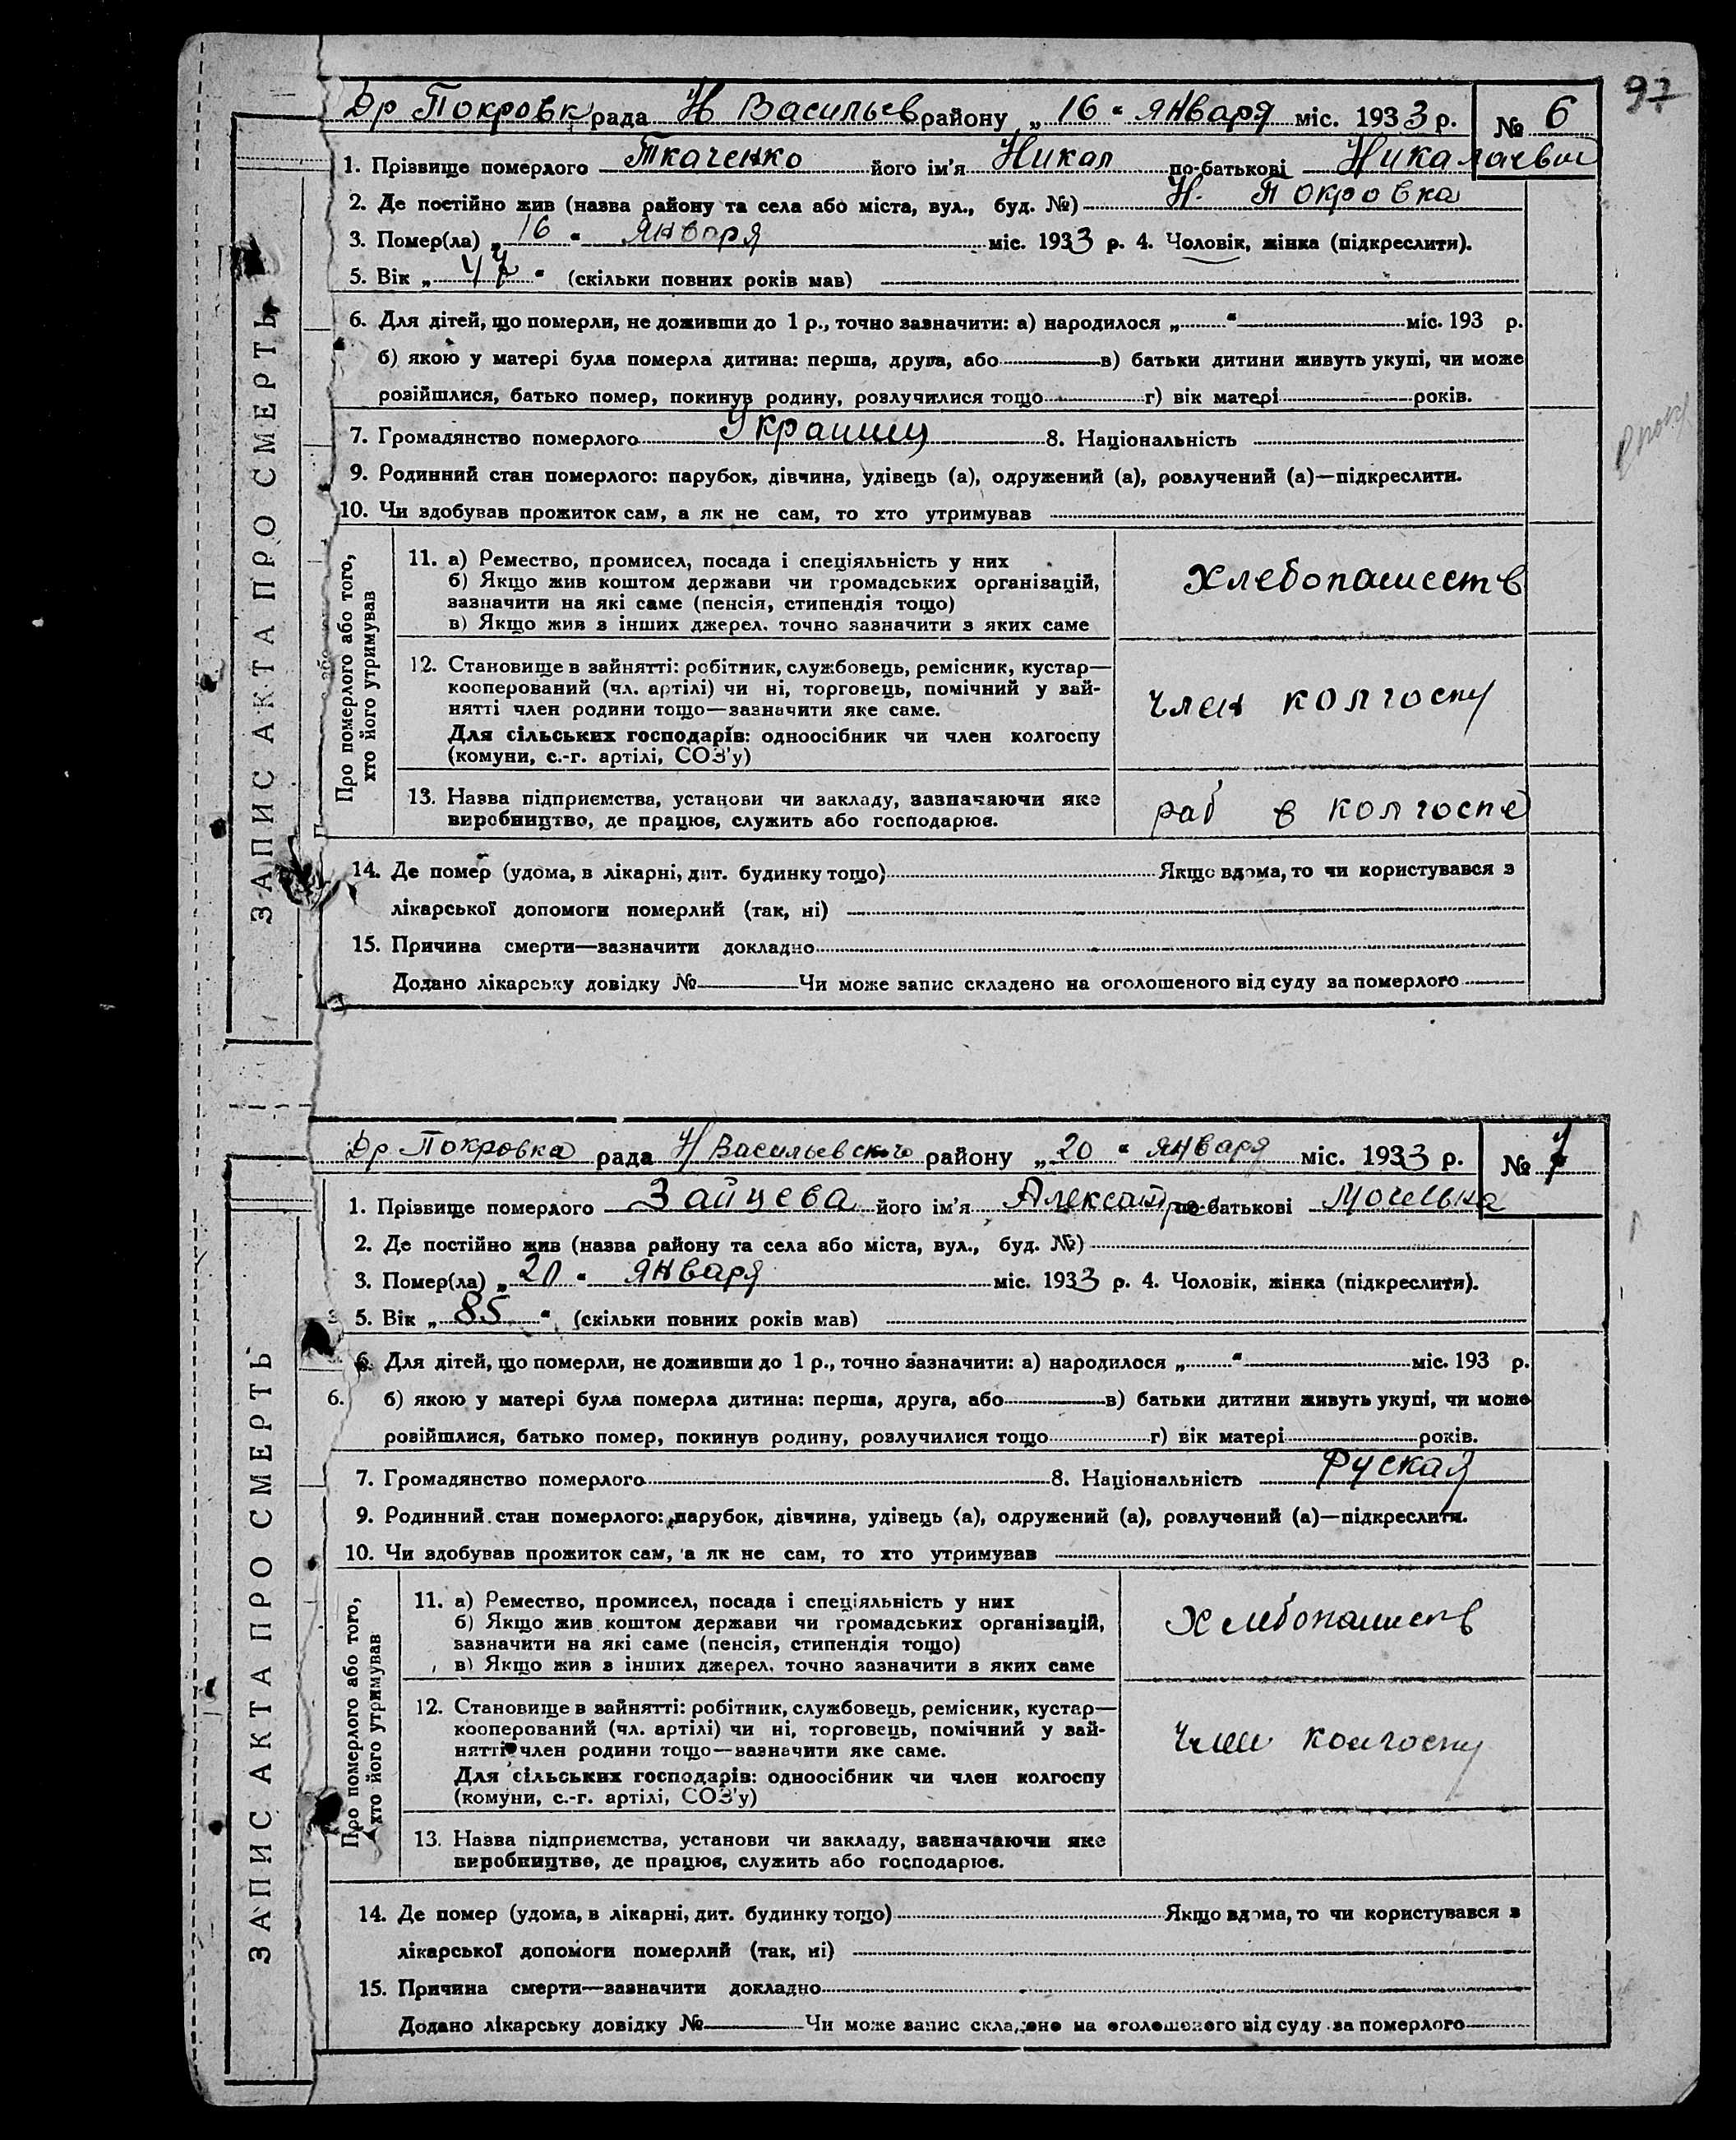 97
Др Покровк рада Н Васильев району „ 16 “ января міс. 1933 р. № 6
1. Прізвище померлого Ткаченко його ім'я Никол по-батькові Николаевич
2. Де постійно жив (назва району та села або міста, вул., буд. №) Н. Покровка
3. Помер(ла) „ 16 “ января міс. 1933 р. 4. Чоловік, жінка (підкреслити).
5. Вік „ 47 “ (скільки повних років мав)
6. Для дітей, що померли, не доживши до 1 р., точно зазначити: а) народилося „ “ міс. 193 р.
б) якою у матері була померла дитина: перша, друга, або в) батьки дитини живуть укупі, чи може
розійшлися, батько помер, покинув родину, розлучилися тощо г) вік матері років.
7. Громадянство померлого Украинец 8. Національність
9. Родинний стан померлого: парубок, дівчина, удівець (а), одружений (а), розлучений (а)—підкреслити.
10. Чи здобував прожиток сам, а як не сам, то хто утримував
ЗАПИС АКТА ПРО СМЕРТЬ
Про померлого або того,
хто його утримував
11. а) Ремество, промисел, посада і спеціяльність у них
б) Якщо жив коштом держави чи громадських організацій,
зазначити на які саме (пенсія, стипендія тощо)
в) Якщо жив з інших джерел, точно зазначити з яких саме
Хлебопашеств
12. Становище в зайнятті: робітник, службовець, ремісник, кустар—
кооперований (чл. артілі) чи ні, торговець, помічний у зай-
нятті член родини тощо—зазначити яке саме.
Для сільських господарів: одноосібник чи член колгоспу
(комуни, с.-г. артілі, СОЗ'у)
член колгоспу
13. Назва підприємства, установи чи закладу, зазначаючи яке
виробництво, де працює, служить або господарює.
раб в колгоспе
14. Де помер (удома, в лікарні, дит. будинку тощо) Якщо вдома, то чи користувався з
лікарської допомоги померлий (так, ні)
15. Причина смерти—зазначити докладно
Додано лікарську довідку № Чи може запис складено на оголошеного від суду за померлого
Др Покровка рада Н Васильевского району „ 20 “ января міс. 1933 р. № 7
1. Прізвище померлого Зайцева його ім'я Александра по-батькові
2. Де постійно жив (назва району та села або міста, вул., буд. №)
3. Помер(ла) „ 20 “ января міс. 1933 р. 4. Чоловік, жінка (підкреслити).
5. Вік „ 85 “ (скільки повних років мав)
6. Для дітей, що померли, не доживши до 1 р., точно зазначити: а) народилося „ “ міс. 193 р.
6. б) якою у матері була померла дитина: перша, друга, або в) батьки дитини живуть укупі, чи може
розійшлися, батько помер, покинув родину, розлучилися тощо г) вік матері років.
7. Громадянство померлого 8. Національність Руская
9. Родинний стан померлого: парубок, дівчина, удівець (а), одружений (а), розлучений (а)—підкреслити.
10. Чи здобував прожиток сам, а як не сам, то хто утримував
ЗАПИС АКТА ПРО СМЕРТЬ
Про померлого або того,
хто його утримував
11. а) Ремество, промисел, посада і спеціяльність у них
б) Якщо жив коштом держави чи громадських організацій,
зазначити на які саме (пенсія, стипендія тощо)
в) Якщо жив з інших джерел, точно зазначити з яких саме
Хлебопашеств
12. Становище в зайнятті: робітник, службовець, ремісник, кустар—
кооперований (чл. артілі) чи ні, торговець, помічний у зай-
нятті член родини тощо—зазначити яке саме.
Для сільських господарів: одноосібник чи член колгоспу
(комуни, с.-г. артілі, СОЗ'у)
член колгоспу
13. Назва підприємства, установи чи закладу, зазначаючи яке
виробництво, де працює, служить або господарює.
14. Де помер (удома, в лікарні, дит. будинку тощо) Якщо вдома, то чи користувався з
лікарської допомоги померлий (так, ні)
15. Причина смерти—зазначити докладно
Додано лікарську довідку № Чи може запис складено на оголошеного від суду за померлого